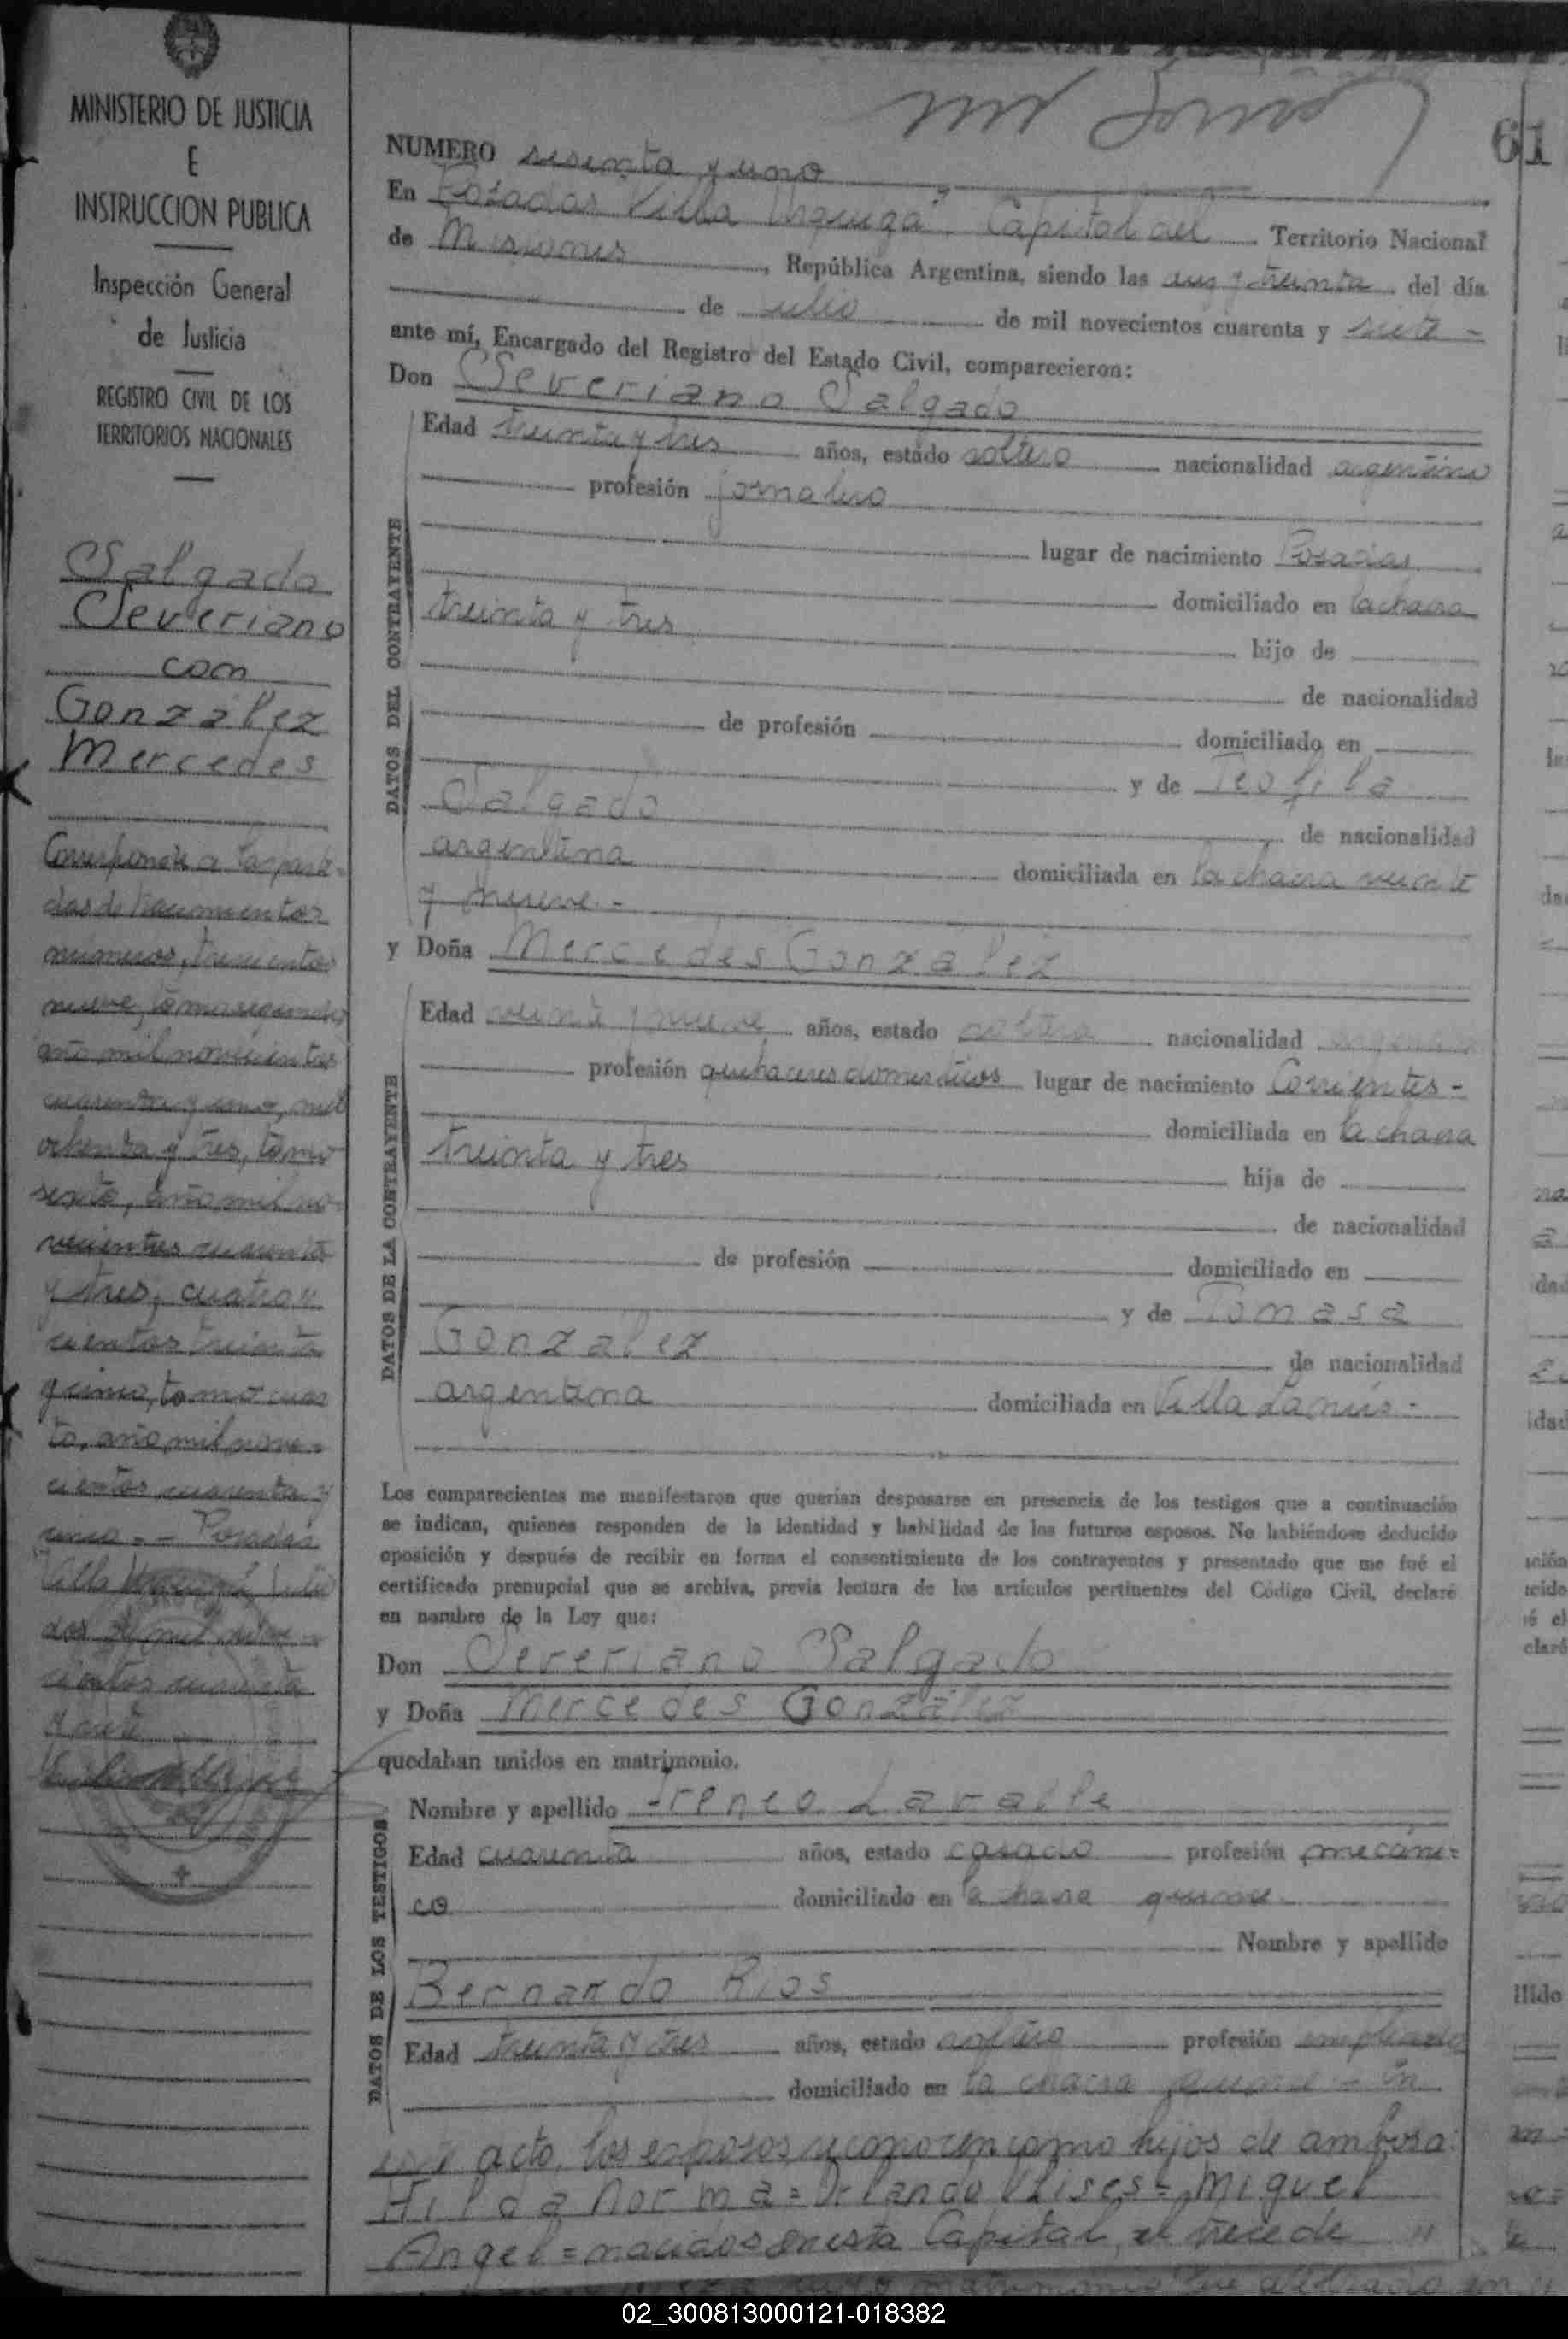 MINISTERIO DE JUSTICIA
E
INSTRUCCION PUBLICA
Inspección General
de Justicia
REGISTRO CIVIL DE LOS
TERRITORIOS NACIONALES
Salgado
Severiano
con
González
Mercedes
Corresponde a las parti-
das de nacimientos
números, trescientos
nueve, tomo segundo
año mil novecientos
cuarenta y uno, mil
ochenta y tres, tomo
sexto, año mil no-
vecientos cuarenta
y tres, cuatro
cientos treinta
y cinco, tomo cuar
to, año mil nove-
cientos cuarenta y
uno.- Posadas
Villa Julio
dos de mil nove-
cientos cuarenta
y siete
61
NUMERO sesenta y uno
En Posadas Villa Urquiza" Capital del Territorio Nacional
de Misiones, República Argentina, siendo las diez y treinta del día
de julio de mil novecientos cuarenta y siete -
ante mí, Encargado del Registro del Estado Civil, comparecieron:
Don Severiano Salgado
DATOS DEL CONTRAYENTE
Edad treinta y tres años, estado soltero nacionalidad argentino
profesión jornalero
lugar de nacimiento Posadas
domiciliado en la chacra
treinta y tres hijo de
de nacionalidad
de profesión domiciliado en
y de Teofila
Salgado de nacionalidad
argentina domiciliada en la chacra veinte
y nueve.-
y Doña Mercedes González
DATOS DE LA CONTRAYENTE
Edad veinte y nueve años, estado soltera nacionalidad argentina
profesión quehaceres domesticos lugar de nacimiento Corrientes -
domiciliada en la chacra
treinta y tres hija de
de nacionalidad
de profesión domiciliado en
y de Tomasa
González de nacionalidad
argentina domiciliada en Villa Lanús.-
Los comparecientes me manifestaron que querían desposarse en presencia de los testigos que a continuación
se indican, quienes responden de la identidad y habilidad de los futuros esposos. No habiéndose deducido
oposición y después de recibir en forma el consentimiento de los contrayentes y presentado que me fué el
certificado prenupcial que se archiva, previa lectura de los artículos pertinentes del Código Civil, declaré
en nombre de la Ley que:
Don Severiano Salgado
y Doña Mercedes González
quedaban unidos en matrimonio.
DATOS DE LOS TESTIGOS
Nombre y apellido Ireneo Lavalle
Edad cuarenta años, estado casado profesión mecáni-
co domiciliado en la chacra quince
Nombre y apellido
Bernardo Rios
Edad treinta y tres años, estado soltero profesión empleado
domiciliado en la chacra quince - En
este acto, los esposos reconocen como hijos de ambos a:
Hilda Norma = Orlando Ulises = Miguel
Angel = nacidos en esta Capital, el trece de
02_300813000121-018382